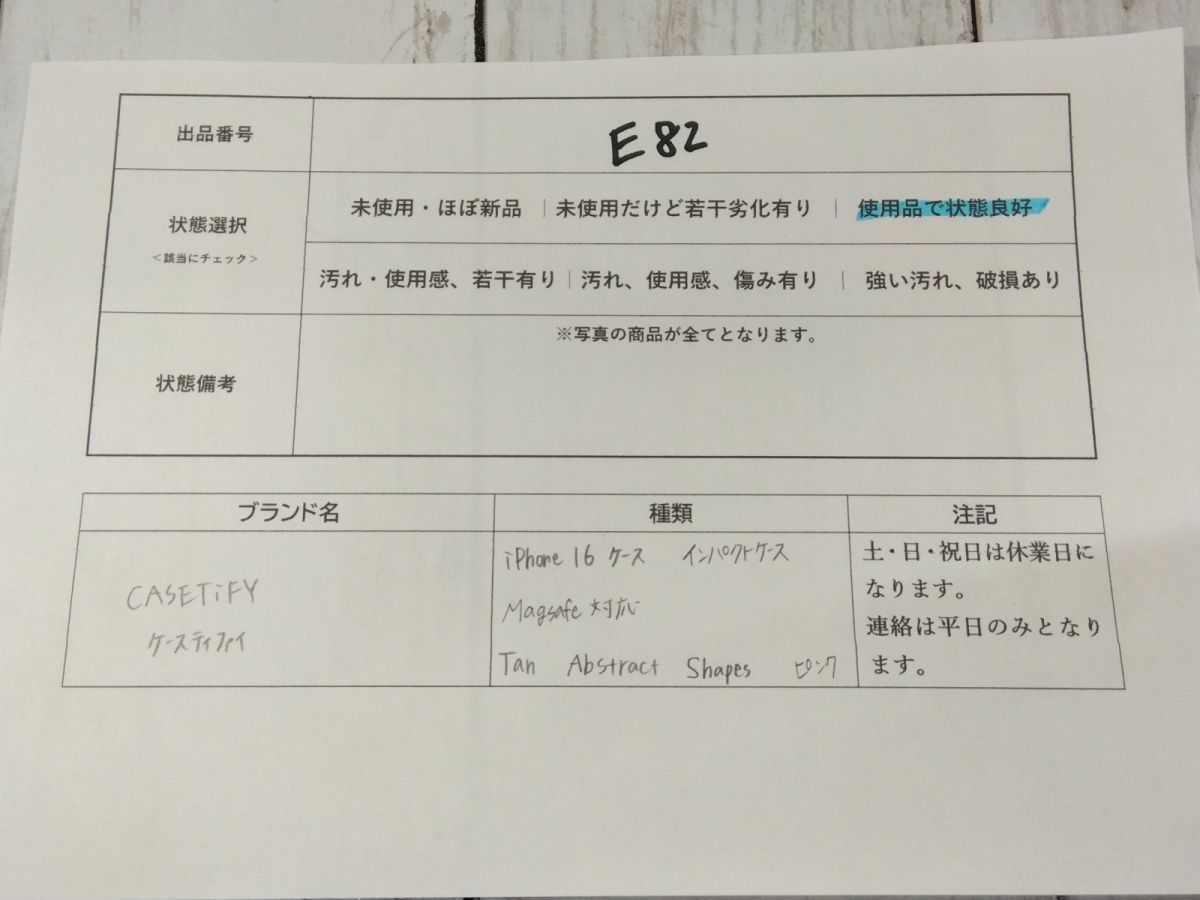 出品番号
E82
状態選択
<該当にチェック>
未使用・ほぼ新品 | 未使用だけど若干劣化有り | 使用品で状態良好
汚れ・使用感、若干有り | 汚れ、使用感、傷み有り | 強い汚れ、破損あり
状態備考
※写真の商品が全てとなります。
ブランド名 種類 注記
CASETiFY
ケースティファイ
iPhone 16 ケース インパクトケース
Magsafe 対応
Tan Abstract Shapes ピンク
土・日・祝日は休業日に
なります。
連絡は平日のみとなり
ます。